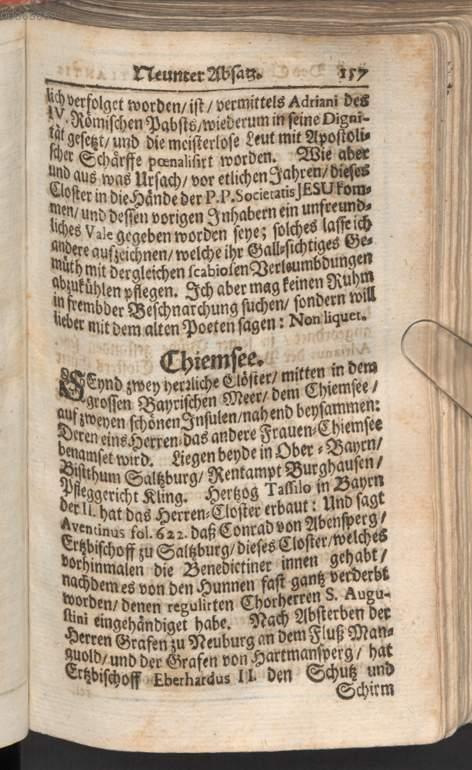 Neunter Absatz. 157
lich verfolget worden/ ist/ vermittels Adriani des
IV. Römischen Pabsts/ wiederum in seine Digni-
tät gesetzt/ und die meisterlose Leut mit Apostoli-
scher Schärffe pœnalisirt worden. Wie aber
und aus was Ursach/ vor etlichen Jahren/ dieses
Closter in die Hände der P.P. Societatis JESU kom-
men/ und dessen vorigen Inhabern ein unfreund-
liches Vale gegeben worden seye; solches lasse ich
andere auszeichnen/ welche ihr Gall-sichtiges Ge-
müth mit dergleichen scabiosen Verleumbdungen
abzukühlen pflegen. Ich aber mag keinen Ruhm
in frembder Beschnarchung suchen/ sondern will
lieber mit dem alten Poeten sagen: Non liquet.
Chiemsee.
SEynd zwey herzliche Clöster/ mitten in dem
grossen Bayrischen Meer/ dem Chiemsee/
auf zweyen schönen Insulen/ nahend beysammen:
Deren eins Herren- das andere Frauen-Chiemsee
benamset wird. Liegen beyde in Ober-Bayrn/
Bistthum Saltzburg/ Rentampt Burghausen/
Pfleggericht Kling. Hertzog Tassilo in Bayrn
der II. hat das Herren-Closter erbaut: Und sagt
Aventinus fol. 622. daß Conrad von Abensperg/
Ertzbischoff zu Saltzburg/ dieses Closter/ welches
vorhinmalen die Benedictiner innen gehabt/
nachdem es von den Hunnen fast gantz verderbt
worden/ denen regulirten Chorherren S. Augu-
stini eingehändiget habe. Nach Absterben der
Herren Grafen zu Neuburg an dem Fluß Man-
guold/ und der Grafen von Hartmansperg/ hat
Ertzbischoff Eberhardus II. den Schutz und
Schirm